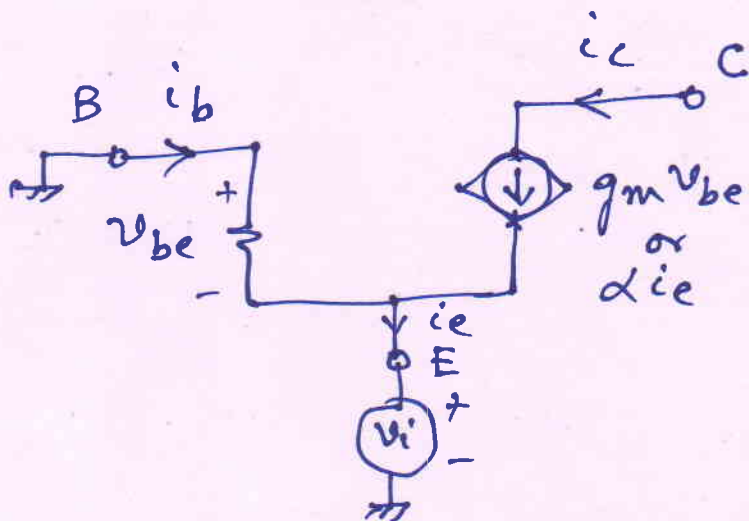 B i_b
i_c C
+
v_be
-
g_m v_be
or
α i_e
i_e
E
+
v_i
-